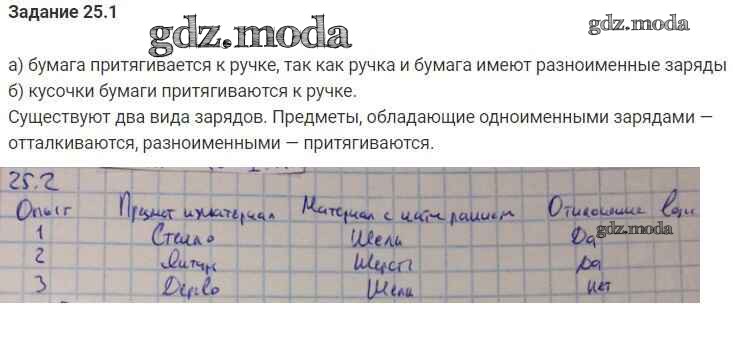 Задание 25.1
gdz.moda
gdz.moda
а) бумага притягивается к ручке, так как ручка и бумага имеют разноименные заряды
б) кусочки бумаги притягиваются к ручке.
Существуют два вида зарядов. Предметы, обладающие одноименными зарядами —
отталкиваются, разноименными — притягиваются.
25.2
Опыт Предмет и материал Материал с натиранием Отклонение
gdz.moda
1 Стекло Шелк Да
2 Янтарь Шерсть Да
3 Дерево Шелк нет